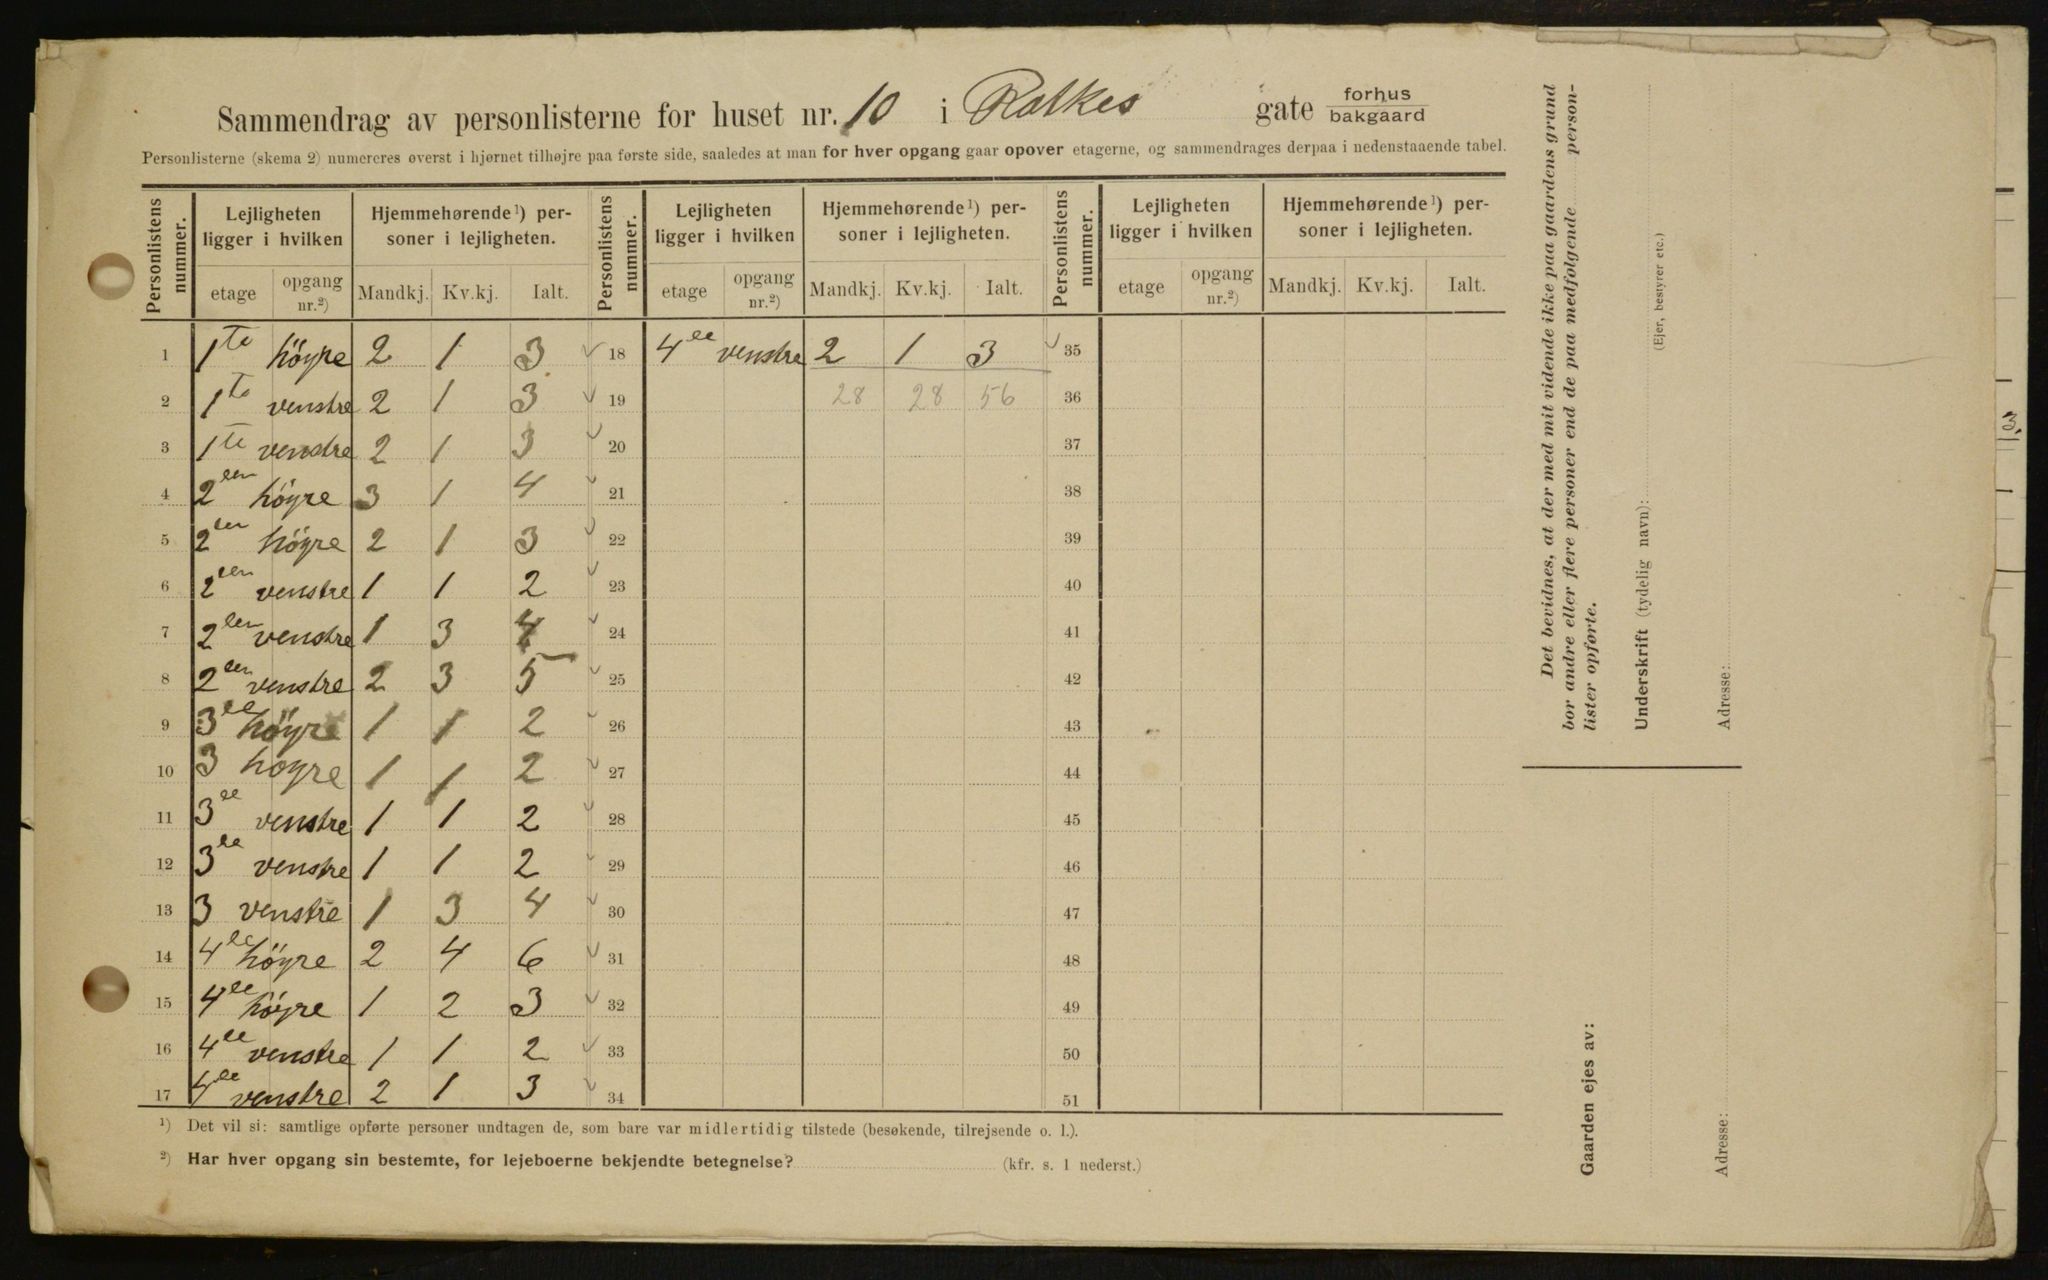 Sammendrag av personlisterne for huset nr. 10 i Ratkes gate forhus / bakgaard
Personlisterne (skema 2) numereres øverst i hjørnet tilhøjre paa første side, saaledes at man for hver opgang gaar opover etagerne, og sammendrages derpaa i nedenstaaende tabel.
Personlistens nummer. Lejligheten ligger i hvilken Hjemmehørende ¹) personer i lejligheten. Personlistens nummer. Lejligheten ligger i hvilken Hjemmehørende ¹) personer i lejligheten. Personlistens nummer. Lejligheten ligger i hvilken Hjemmehørende ¹) personer i lejligheten.
etage opgang nr.²) Mandkj. Kv.kj. Ialt. etage opgang nr.²) Mandkj. Kv.kj. Ialt. etage opgang nr.²) Mandkj. Kv.kj. Ialt.
1 1te höyre 2 1 3 18 4de venstre 2 1 3 35
2 1te venstre 2 1 3 19 28 28 56 36
3 1te venstre 2 1 3 20 37
4 2den höyre 3 1 4 21 38
5 2den höyre 2 1 3 22 39
6 2den venstre 1 1 2 23 40
7 2den venstre 1 3 4 24 41
8 2den venstre 2 3 5 25 42
9 3de höyre 1 1 2 26 43
10 3 höyre 1 1 2 27 44
11 3de venstre 1 1 2 28 45
12 3de venstre 1 1 2 29 46
13 3 venstre 1 3 4 30 47
14 4de höyre 2 4 6 31 48
15 4de höyre 1 2 3 32 49
16 4de venstre 1 1 2 33 50
17 4de venstre 2 1 3 34 51
¹) Det vil si: samtlige opførte personer undtagen de, som bare var midlertidig tilstede (besøkende, tilrejsende o. l.).
²) Har hver opgang sin bestemte, for lejeboerne bekjendte betegnelse? (kfr. s. 1 nederst.)
Det bevidnes, at der med mit vidende ikke paa gaardens grund
bor andre eller flere personer end de paa medfølgende person-
lister opførte.
Underskrift (tydelig navn):
(Ejer, bestyrer etc.)
Adresse:
Gaarden ejes av:
Adresse: